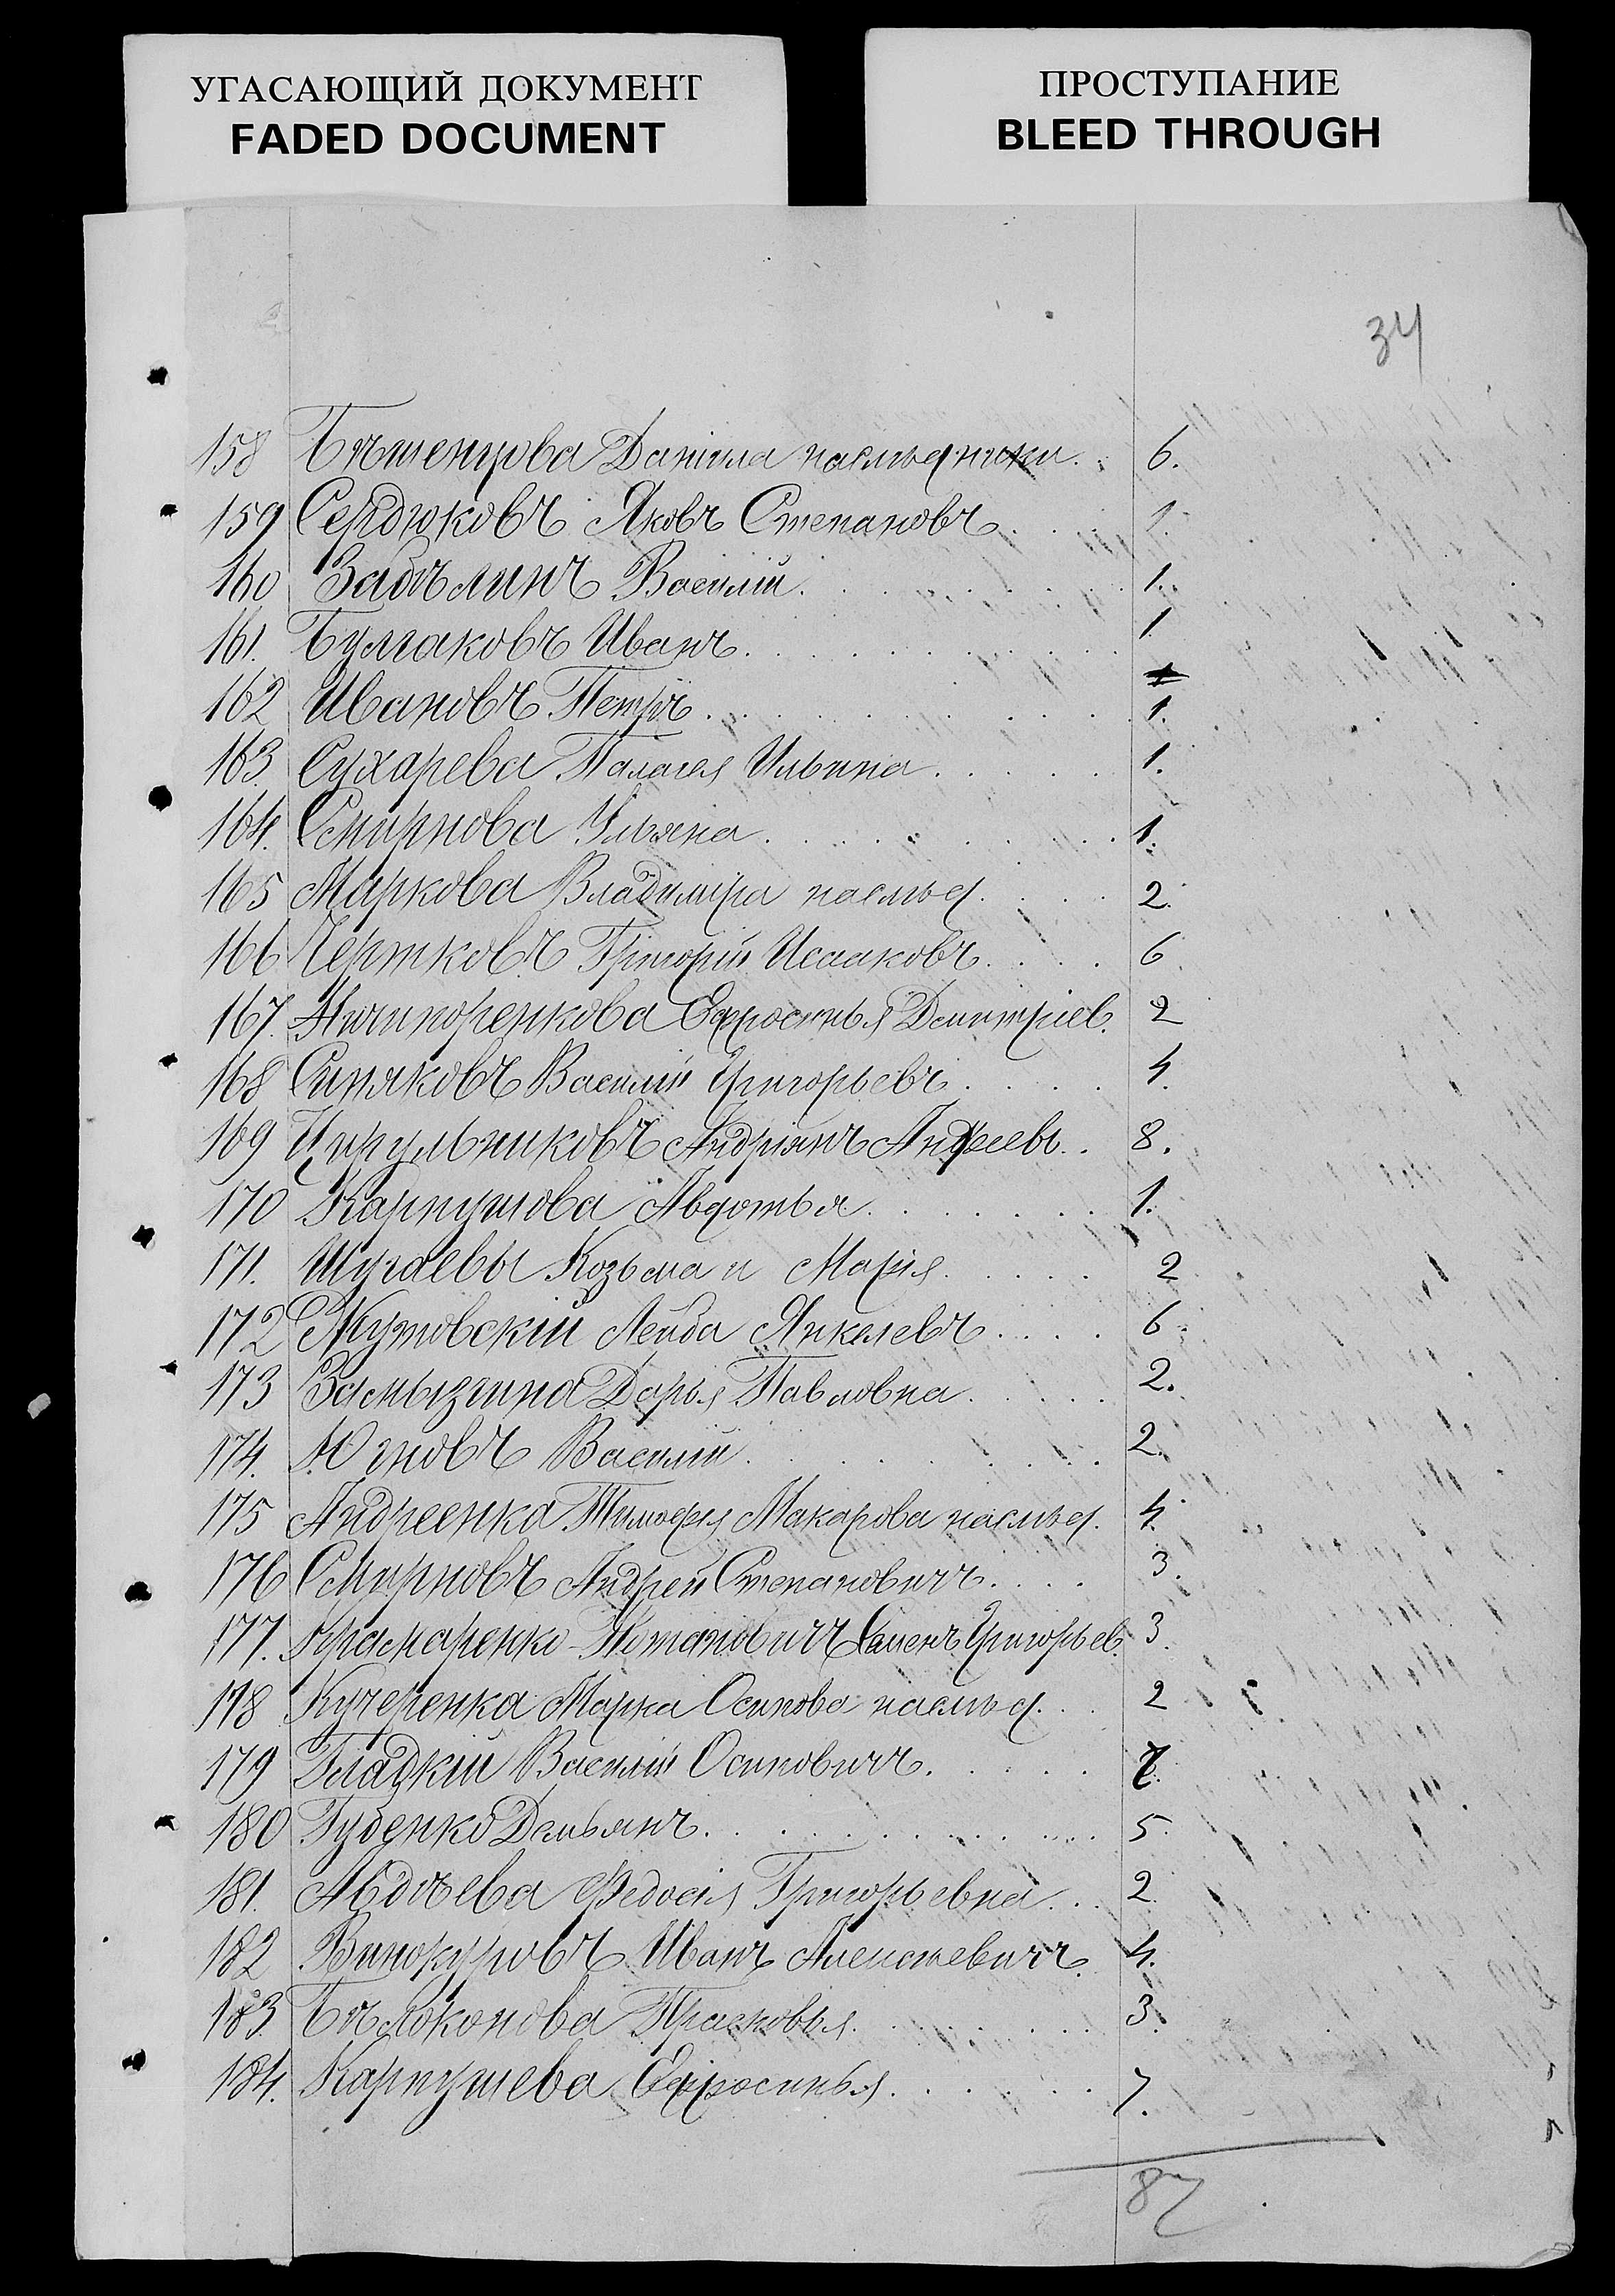 УГАСАЮЩИЙ ДОКУМЕНТ
FADED DOCUMENT
ПРОСТУПАНИЕ
BLEED THROUGH
34
158 Бѣшенцова Данiила наслѣдники. 6.
159 Сердюковъ Яковъ Степановъ 1.
160 Забѣлинъ Василiй 1.
161. Булгаковъ Иванъ 1
162 Ивановъ Петръ 1.
163. Сухарева Палагея Ильина 1.
164. Смирнова Ульяна 1.
165 Маркова Владимiра наслѣд. 2.
166 Чертковъ Григорiй Исааковъ 6.
167. Ничипоренкова Ефросинья Дмитрiев. 2
168 Синяковъ Василiй Григорьевъ 4.
169 Цирульниковъ Андрiянъ Андреевъ 8.
170 Карпушова Авдотья 1.
171. Шугаевы Козьма и Марiя 2
172 Жутовскiй Лейба Янкелевъ 6
173 Замызгина Дарья Павловна 2.
174. Юновъ Василiй 2.
175 Андреенка Тимофея Макарова наслѣд. 4.
176 Смирновъ Андрей Степановичъ 3.
177. Крамаренко-Потаповичъ Семенъ Григорьев. 3.
178 Кучеренка Марка Осипова наслѣд. 2
179 Гладкiй Василiй Осиповичъ
180 Губенко Демьянъ 5.
181. Авдѣева Федосiя Григорьевна 2.
182 Винокуровъ Иванъ Алексѣевичъ 4.
183. Бѣлоконова Прасковья 3.
184. Карпушева Ефросинья 7.
87